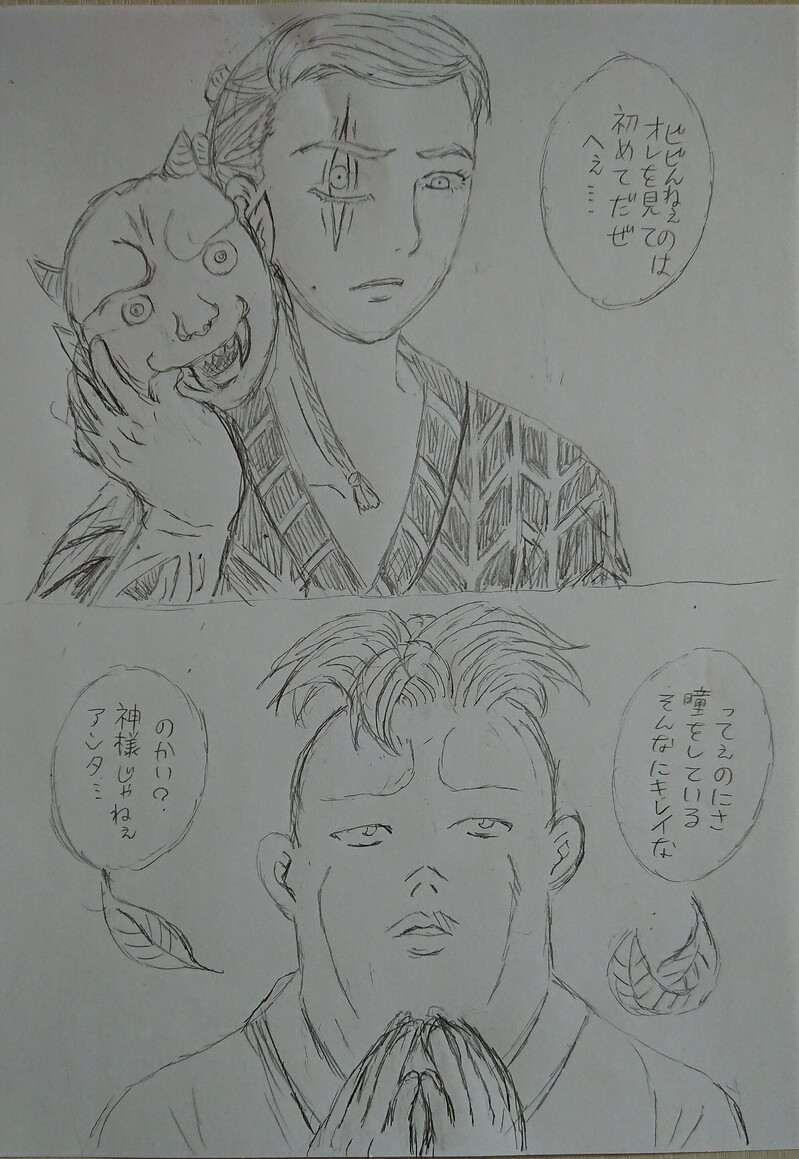 へぇ……
初めてだぜ
オレを見て
ビビんねぇのは
アンタ…
神様じゃねぇ
のかい？
そんなにキレイな
瞳をしている
ってぇのにさ